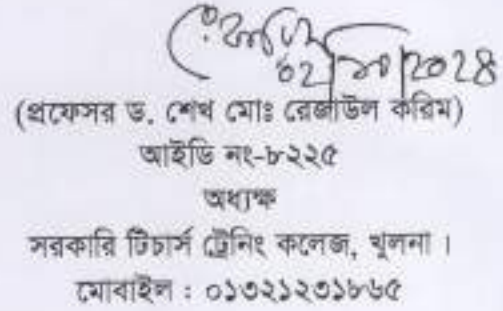 ০২/১০/২০২৪
(প্রফেসর ড. শেখ মোঃ রেজাউল করিম)
আইডি নং-৮২২৫
অধ্যক্ষ
সরকারি টিচার্স ট্রেনিং কলেজ, খুলনা ।
মোবাইল : ০১৩২১২৩১৮৬৫